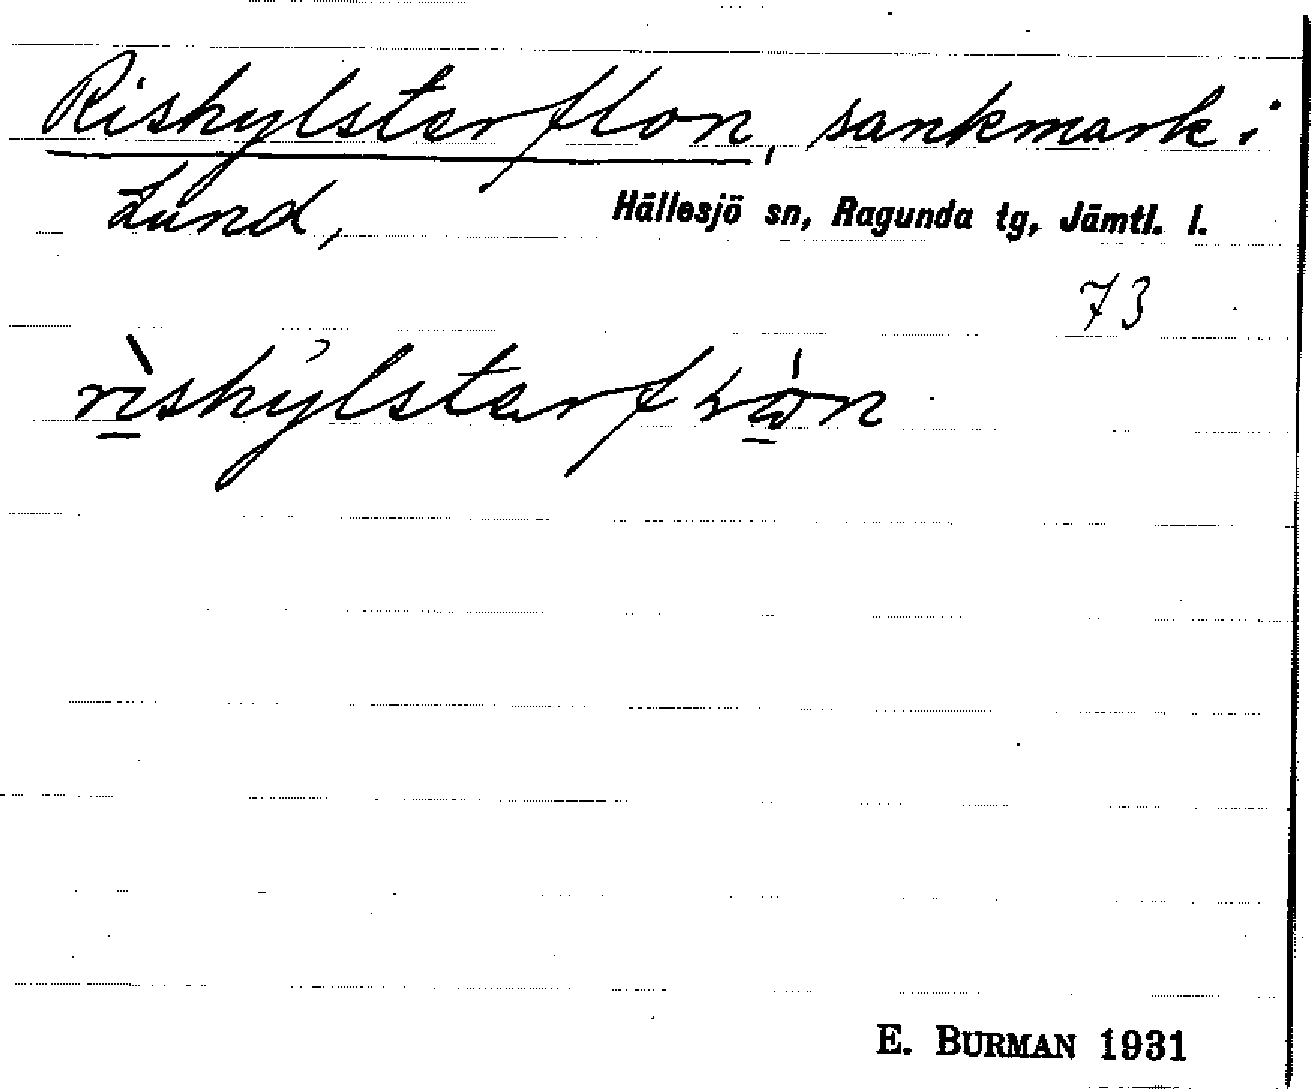 Riskylstarflon, sankmark i
Lund, Hällesjö sn, Ragunda tg, Jämtl. l.
73
E. BURMAN 1931